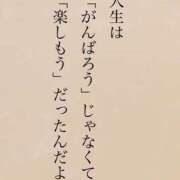 人生は
「がんばろう」じゃなくて
「楽しもう」だったんだよ